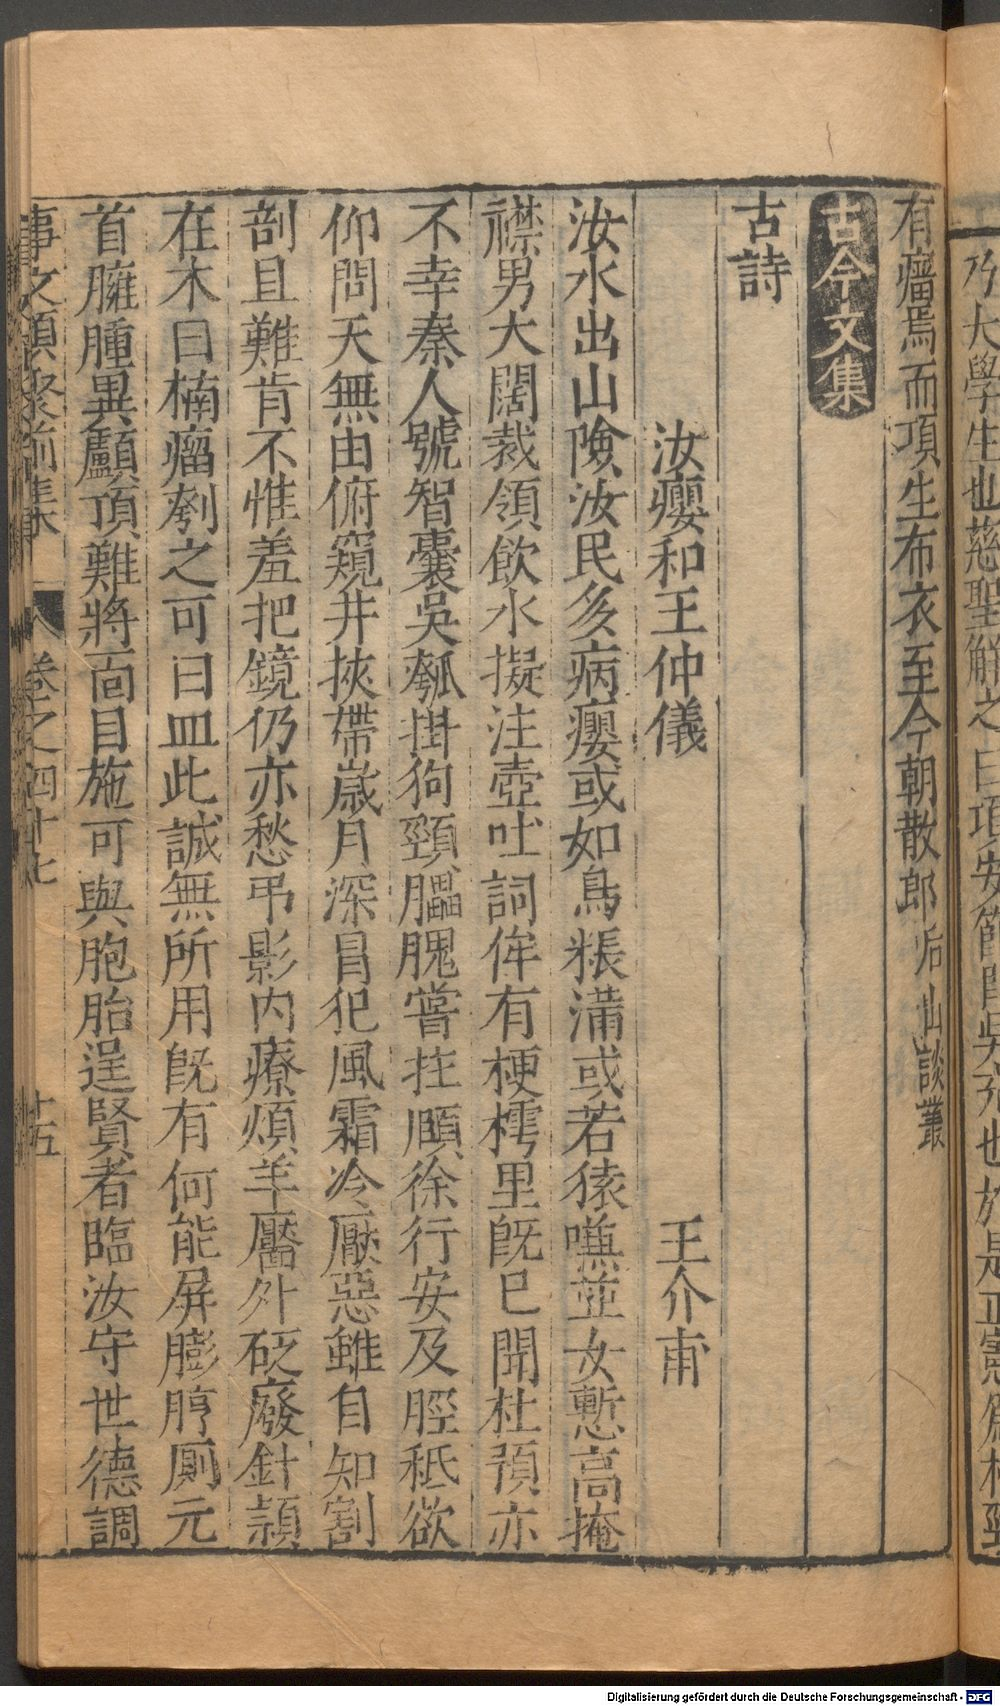 有癅焉而項生布衣至今朝散郎后山談叢
古今文集
古詩
汝癭和王仲儀 王介甫
汝水出山險汝民多病癭或如鳥粻滿或若猿嗛並女慙高掩
襟男大闊裁領飲水擬注壺吐詞侔有梗樗里旣已聞杜預亦
不幸秦人號智囊吳瓠掛狗頸膃腲嘗拄頤徐行安及脛秖欲
仰問天無由俯窺井挾帶歳月深冒犯風霜冷厭惡雖自知割
剖且難肯不惟羞把鏡仍亦愁弔影内療煩羊靨外砭廢針頴
在木曰楠瘤刳之可曰皿此誠無所用旣有何能屏膨脝厠元
首臃腫異顱頂難將面目施可與胞胎逞賢者臨汝守世德調
事文類聚前集 卷之四十七 十五
Digitalisierung gefördert durch die Deutsche Forschungsgemeinschaft - DFG